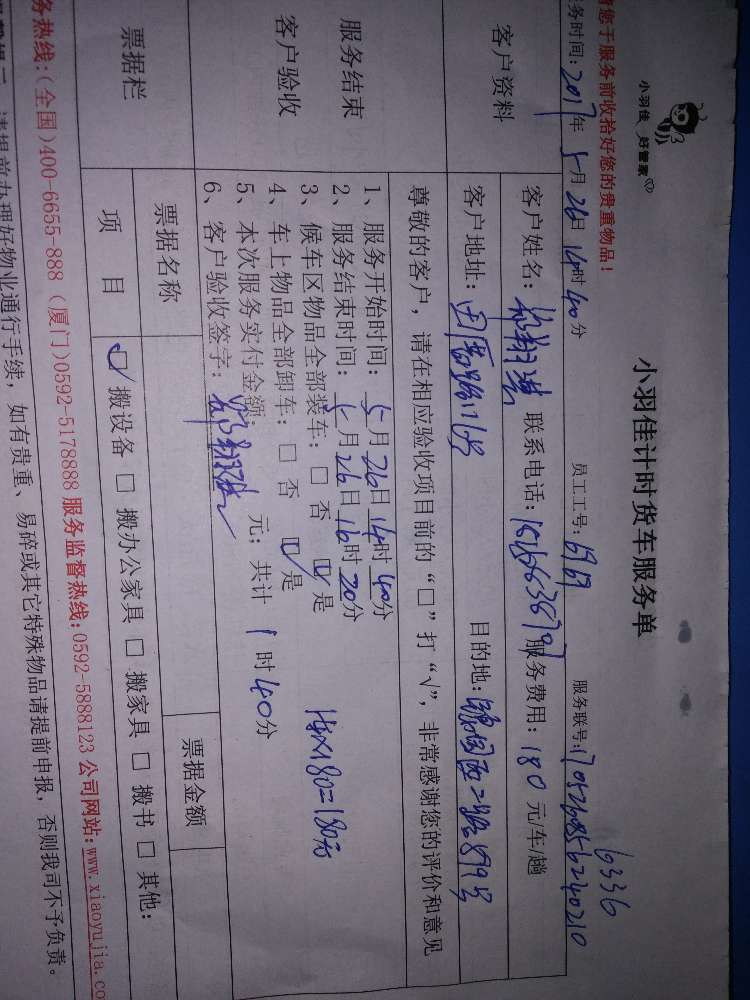 小羽佳 好管家
小羽佳计时货车服务单
6336
您于服务前收拾好您的贵重物品!
务时间:2017年5月26日14时40分 员工工号: 服务联号:
客户资料
客户姓名: 联系电话: 服务费用:180元/车/趟
客户地址: 目的地:
尊敬的客户,请在相应验收项目前的“□”打“√”,非常感谢您的评价和意见
服务结束
客户验收
1、服务开始时间:5月26日14时40分
2、服务结束时间:5月26日16时20分
3、候车区物品全部装车:□ 否 ☑ 是
4、车上物品全部卸车:□ 否 ☑ 是
5、本次服务实付金额: 元;共计 1时40分
1车×180=180元
6、客户验收签字:
票据栏
票据名称 票据金额
项 目 ☑ 搬设备 □ 搬办公家具 □ 搬家具 □ 搬书 □ 其他:
务热线:(全国)400-6655-888 (厦门)0592-5178888 服务监督热线:0592-5888123 公司网站:www.xiaoyujia.co
请提前办理好物业通行手续,如有贵重、易碎或其它特殊物品请提前申报,否则我司不予负责。